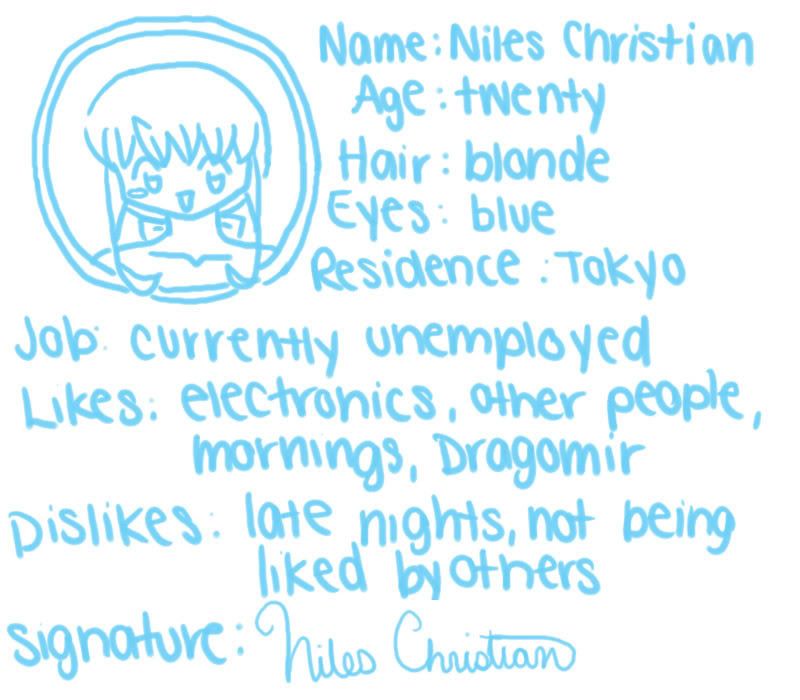 Name: Niles Christian
Age: twenty
Hair: blonde
Eyes: blue
Residence: Tokyo
Job: currently unemployed
Likes: electronics, other people,
mornings, Dragomir
Dislikes: late nights, not being
liked by others
signature: Niles Christian